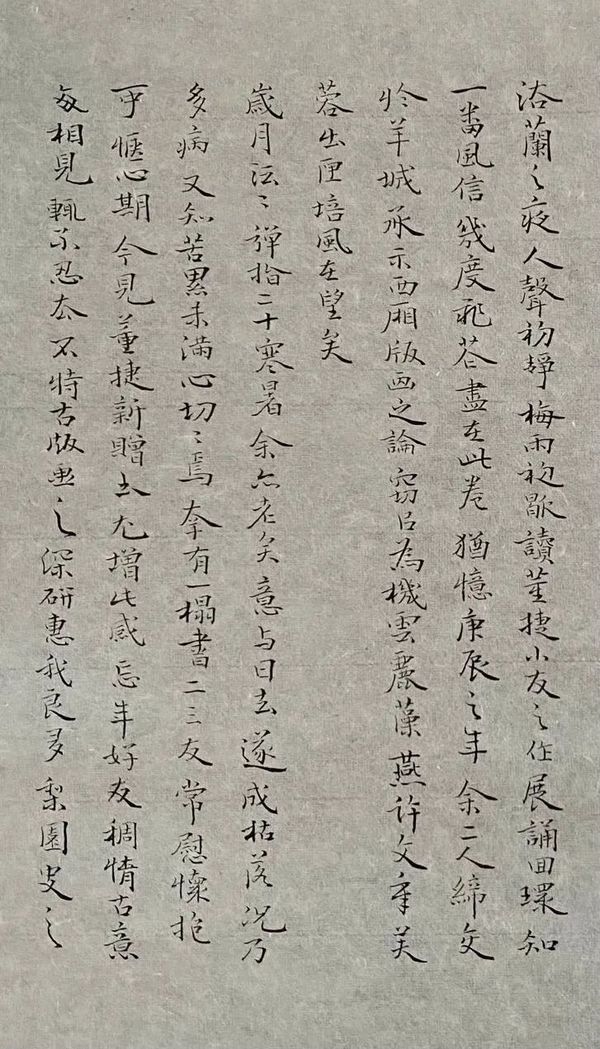 浴蘭之夜人聲初靜梅雨初歇讀董捷小友之作展誦回環知
一番風信幾度飛花盡在此卷猶憶庚辰之年余二人締交
於羊城承示西廂版画之論竊以為機雲麗藻燕許文章芙
蓉出匣培風在望矣
歲月法〻彈指二十寒暑余亦老矣意与日去遂成枯落況乃
多病又知苦累未滿心切〻焉幸有一榻書二三友常慰懷抱
可乎愜心期今見董捷新贈書尤增此感忘年好友稠情古意
每相見輒不忍去不特古版画之深研惠我良多梨園史之